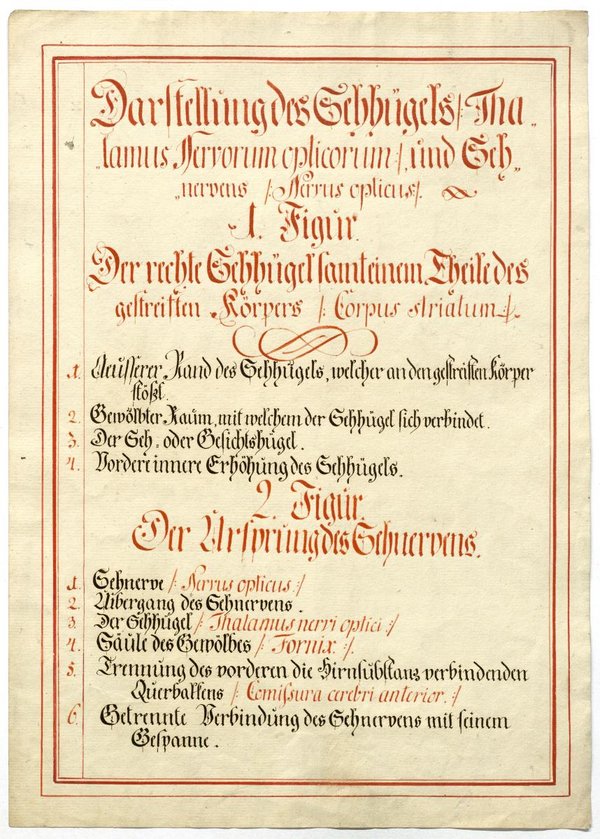 Darstellung des Sehhügels /: Tha-
lamus Nervorum opticorum :/, und Seh-
nervens /: Nervus opticus :/.
1. Figur.
Der rechte Sehhügel samt einem Theile des
gestreiften Körpers /: Corpus striatum :/.
1. Aeusserer Rand des Sehhügels, welcher an den gesträften Körper
stößt.
2. Gewölbter Raum, mit welchem der Sehhügel sich verbindet.
3. Der Seh- oder Gesichtshügel.
4. Vordere innere Erhöhung des Sehhügels.
2. Figur.
Der Ursprung des Sehnervens.
1. Sehnerve /: Nervus opticus :/
2. Uibergang des Sehnervens.
3. Der Sehhügel /: Thalamus nervi optici :/
4. Säule des Gewölbes /: Fornix :/.
5. Trennung des vorderen die Hirnsubstanz verbindenden
Querbalkens /: Comissura cerebri anterior :/
6. Getrennte Verbindung des Sehnervens mit seinem
Gespanne.